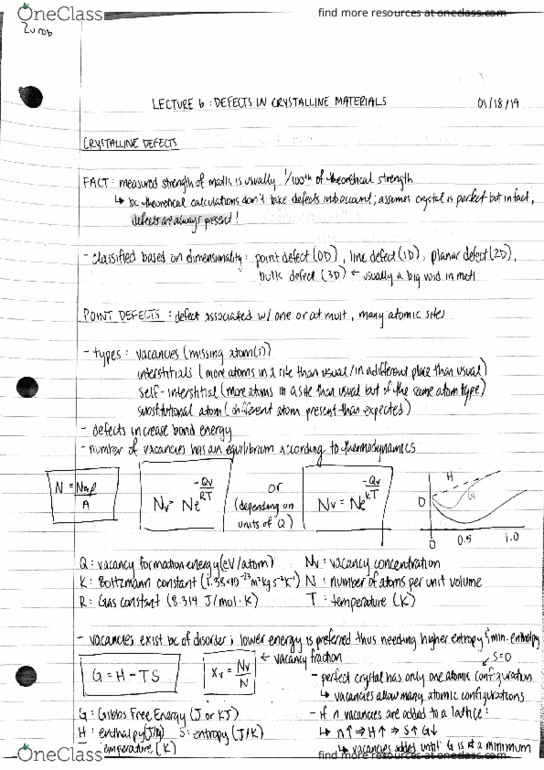 OneClass
find more resources at oneclass.com
Zurob
LECTURE 6 : DEFECTS IN CRYSTALLINE MATERIALS 01/18/19
CRYSTALLINE DEFECTS
FACT : measured strength of matls is usually 1/100th of theoretical strength
↳ bc theoretical calculations don't take defects into account; assumes crystal is perfect but in fact,
defects are always present!
- classified based on dimensionality : point defect (0D) , line defect (1D) , planar defect (2D),
bulk defect (3D) ← usually a big void in matl
POINT DEFECTS : defect associated w/ one or at most , many atomic sites
- types : vacancies (missing atom(s))
interstitials (more atoms in a site than usual / in a different place than usual)
self-interstitial (more atoms in a site than usual but of the same atom type)
substitutional atom (different atom present than expected)
- defects increase bond energy
- number of vacancies has an equilibrium according to thermodynamics
N = NAρ / A
Nv = Ne^(-Qv/RT) or (depending on units of Q) Nv = Ne^(-Qv/KT)
H
G
0
0 0.5 1.0
Q : vacancy formation energy (eV/atom) Nv : vacancy concentration
K : Boltzmann constant (1.38×10^-23 m²kg s^-2 K^-1) N : number of atoms per unit volume
R : Gas constant (8.314 J/mol·K) T : temperature (K)
- vacancies exist bc of disorder ; lower energy is preferred thus needing higher entropy & min. enthalpy
G = H - TS
Xv = Nv / N ← vacancy fraction
S=0
- perfect crystal has only one atomic configuration
↳ vacancies allow many atomic configurations
G : Gibbs Free Energy (J or KJ)
- if n vacancies are added to a lattice :
H : enthalpy (J/g) S : entropy (J/K)
↳ n↑ → H↑ → S↑ G↓
temperature (K)
↳ vacancies added until G is at a minimum
OneClass
find more resources at oneclass.com